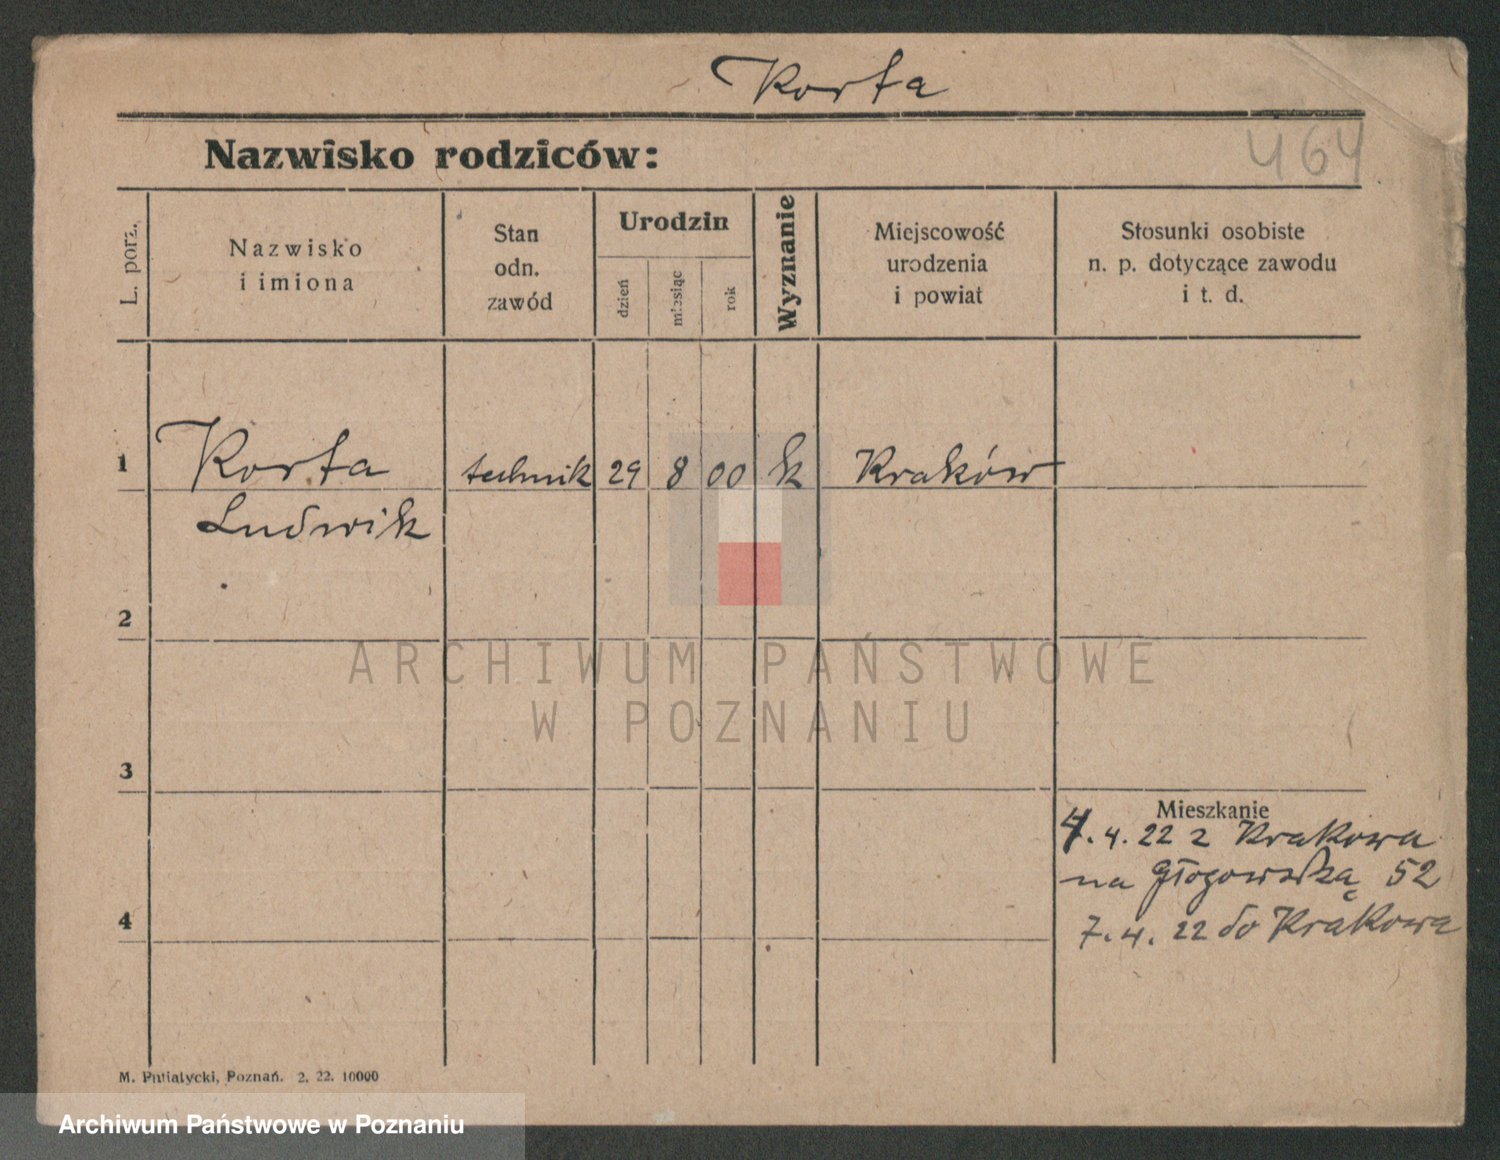 Korta
Nazwisko rodziców:
464
L. porz.
Nazwisko
i imiona
Stan
odn.
zawód
Urodzin
dzień
miesiąc
rok
Wyznanie
Miejscowość
urodzenia
i powiat
Stosunki osobiste
n. p. dotyczące zawodu
i t. d.
1
Korta
technik
29
8
00
k
Kraków
Ludwik
2
ARCHIWUM PAŃSTWOWE
W POZNANIU
3
Mieszkanie
4. 4. 22 z Krakowa
na Głogowską 52
4
7. 4. 22 do Krakowa
M. Putiatycki, Poznań. 2. 22. 10000
Archiwum Państwowe w Poznaniu